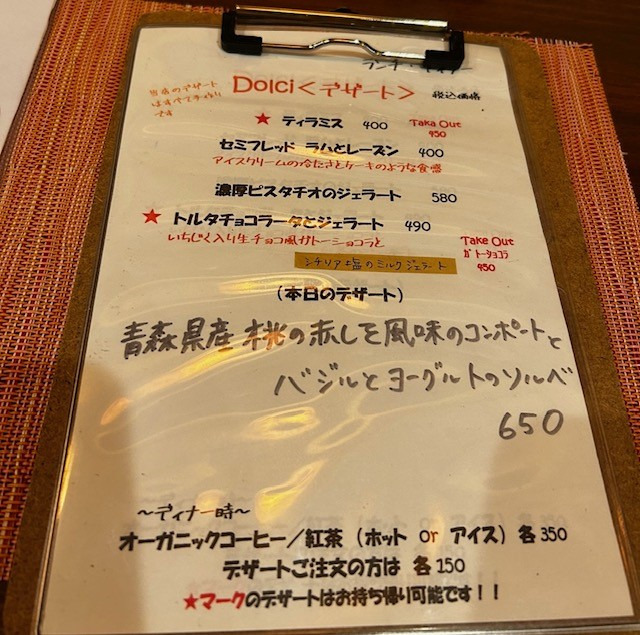 ランチ・ディナー
Dolci＜デザート＞ 税込価格
当店のデザート
はすべて手作り
です
★ ティラミス 400 Take Out
450
セミフレッド ラムとレーズン 400
アイスクリームの冷たさとケーキのような食感
濃厚ピスタチオのジェラート 580
★ トルタチョコラータとジェラート 490
いちじく入り生チョコ風ガトーショコラと Take Out
ガトーショコラ
450
シチリア塩のミルクジェラート
（本日のデザート）
青森県産 桃の赤しそ風味のコンポートと
バジルとヨーグルトのソルベ
650
～ディナー時～
オーガニックコーヒー／紅茶（ホット or アイス）各350
デザートご注文の方は 各150
★マークのデザートはお持ち帰り可能です！！